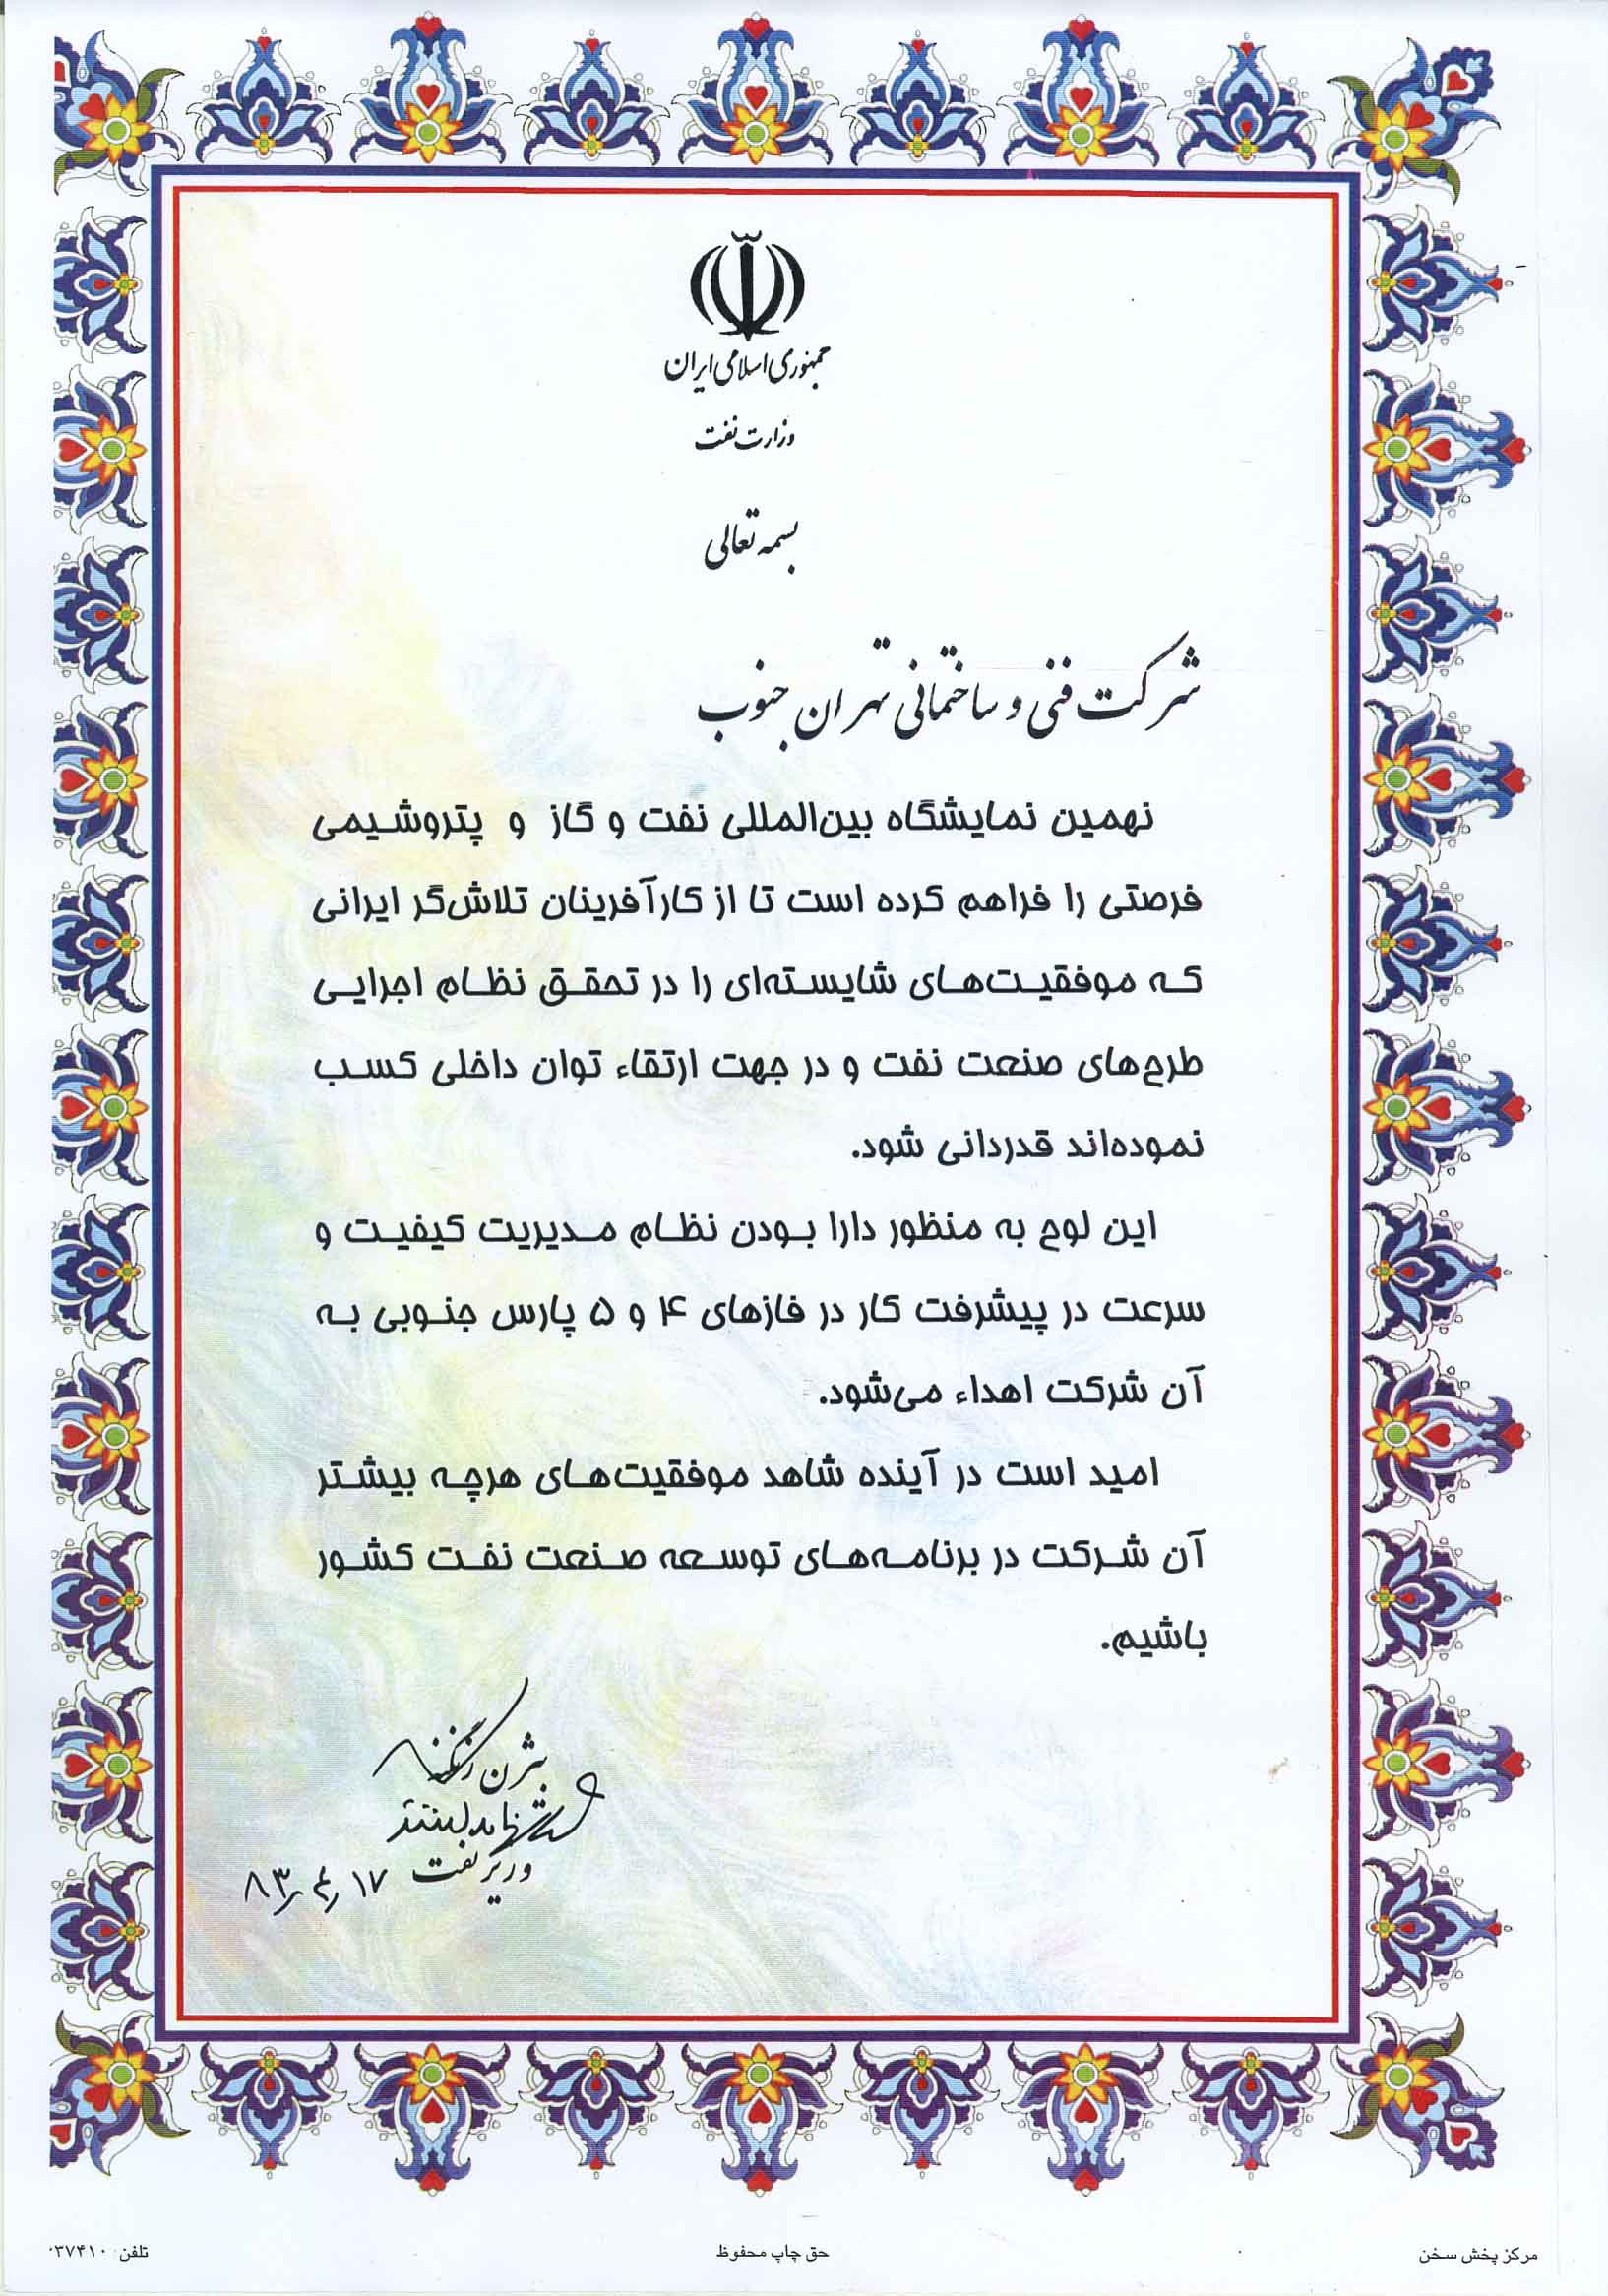 جمهوری اسلامی ایران
وزارت نفت
بسمه تعالی
شرکت فنی و ساختمانی تهران جنوب
نهمین نمایشگاه بین‌المللی نفت و گاز و پتروشیمی
فرصتی را فراهم کرده است تا از کارآفرینان تلاش‌گر ایرانی
که موفقیت‌های شایسته‌ای را در تحقق نظام اجرایی
طرح‌های صنعت نفت و در جهت ارتقاء توان داخلی کسب
نموده‌اند قدردانی شود.
این لوح به منظور دارا بودن نظام مدیریت کیفیت و
سرعت در پیشرفت کار در فازهای ۴ و ۵ پارس جنوبی به
آن شرکت اهداء می‌شود.
امید است در آینده شاهد موفقیت‌های هرچه بیشتر
آن شرکت در برنامه‌های توسعه صنعت نفت کشور
باشیم.
بیژن زنگنه
وزیر نفت ۸۳/۴/۱۷
مرکز پخش سخن
حق چاپ محفوظ
تلفن ۰۳۷۴۱۰